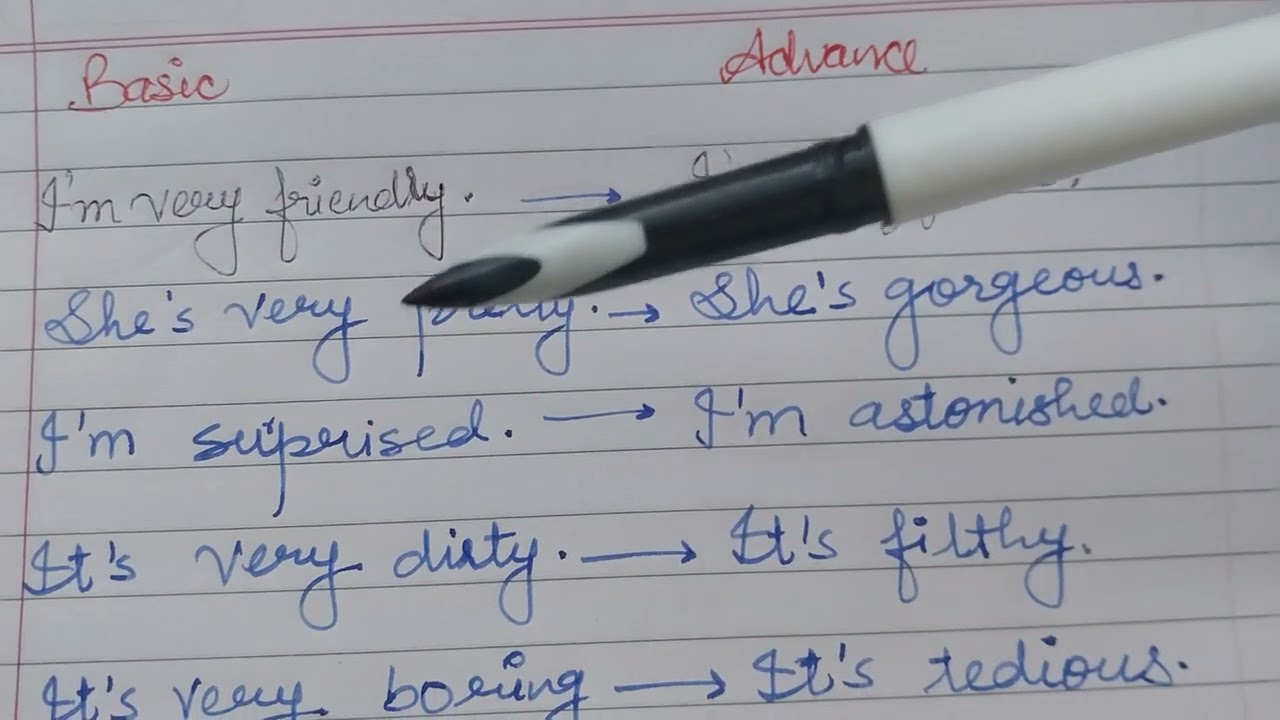 Basic Advance
I'm very friendly. →
She's very → She's gorgeous.
I'm suprised. → I'm astonished.
It's very dirty. → It's filthy.
It's very boring → It's tedious.